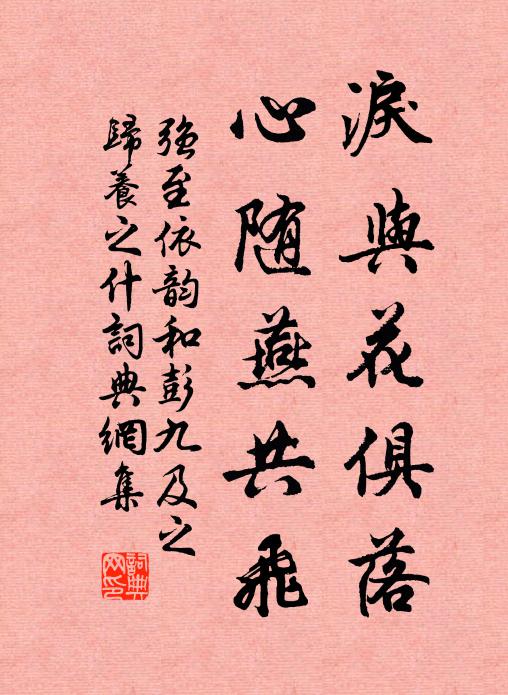 淚與花俱落
心随燕共飛
強至依韵和彭九及之
歸養之什詞典網集
詞典網印